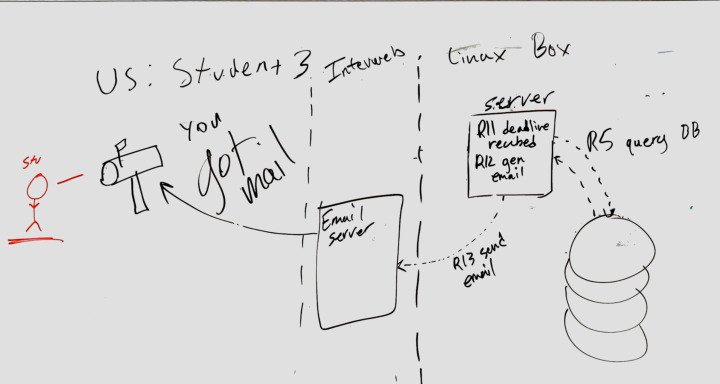 US: Student 3
Interweb
Linux Box
server
R11 deadline
reached
R12 gen
email
R5 query DB
you
got
mail
stu
Email
server
R13 send
email